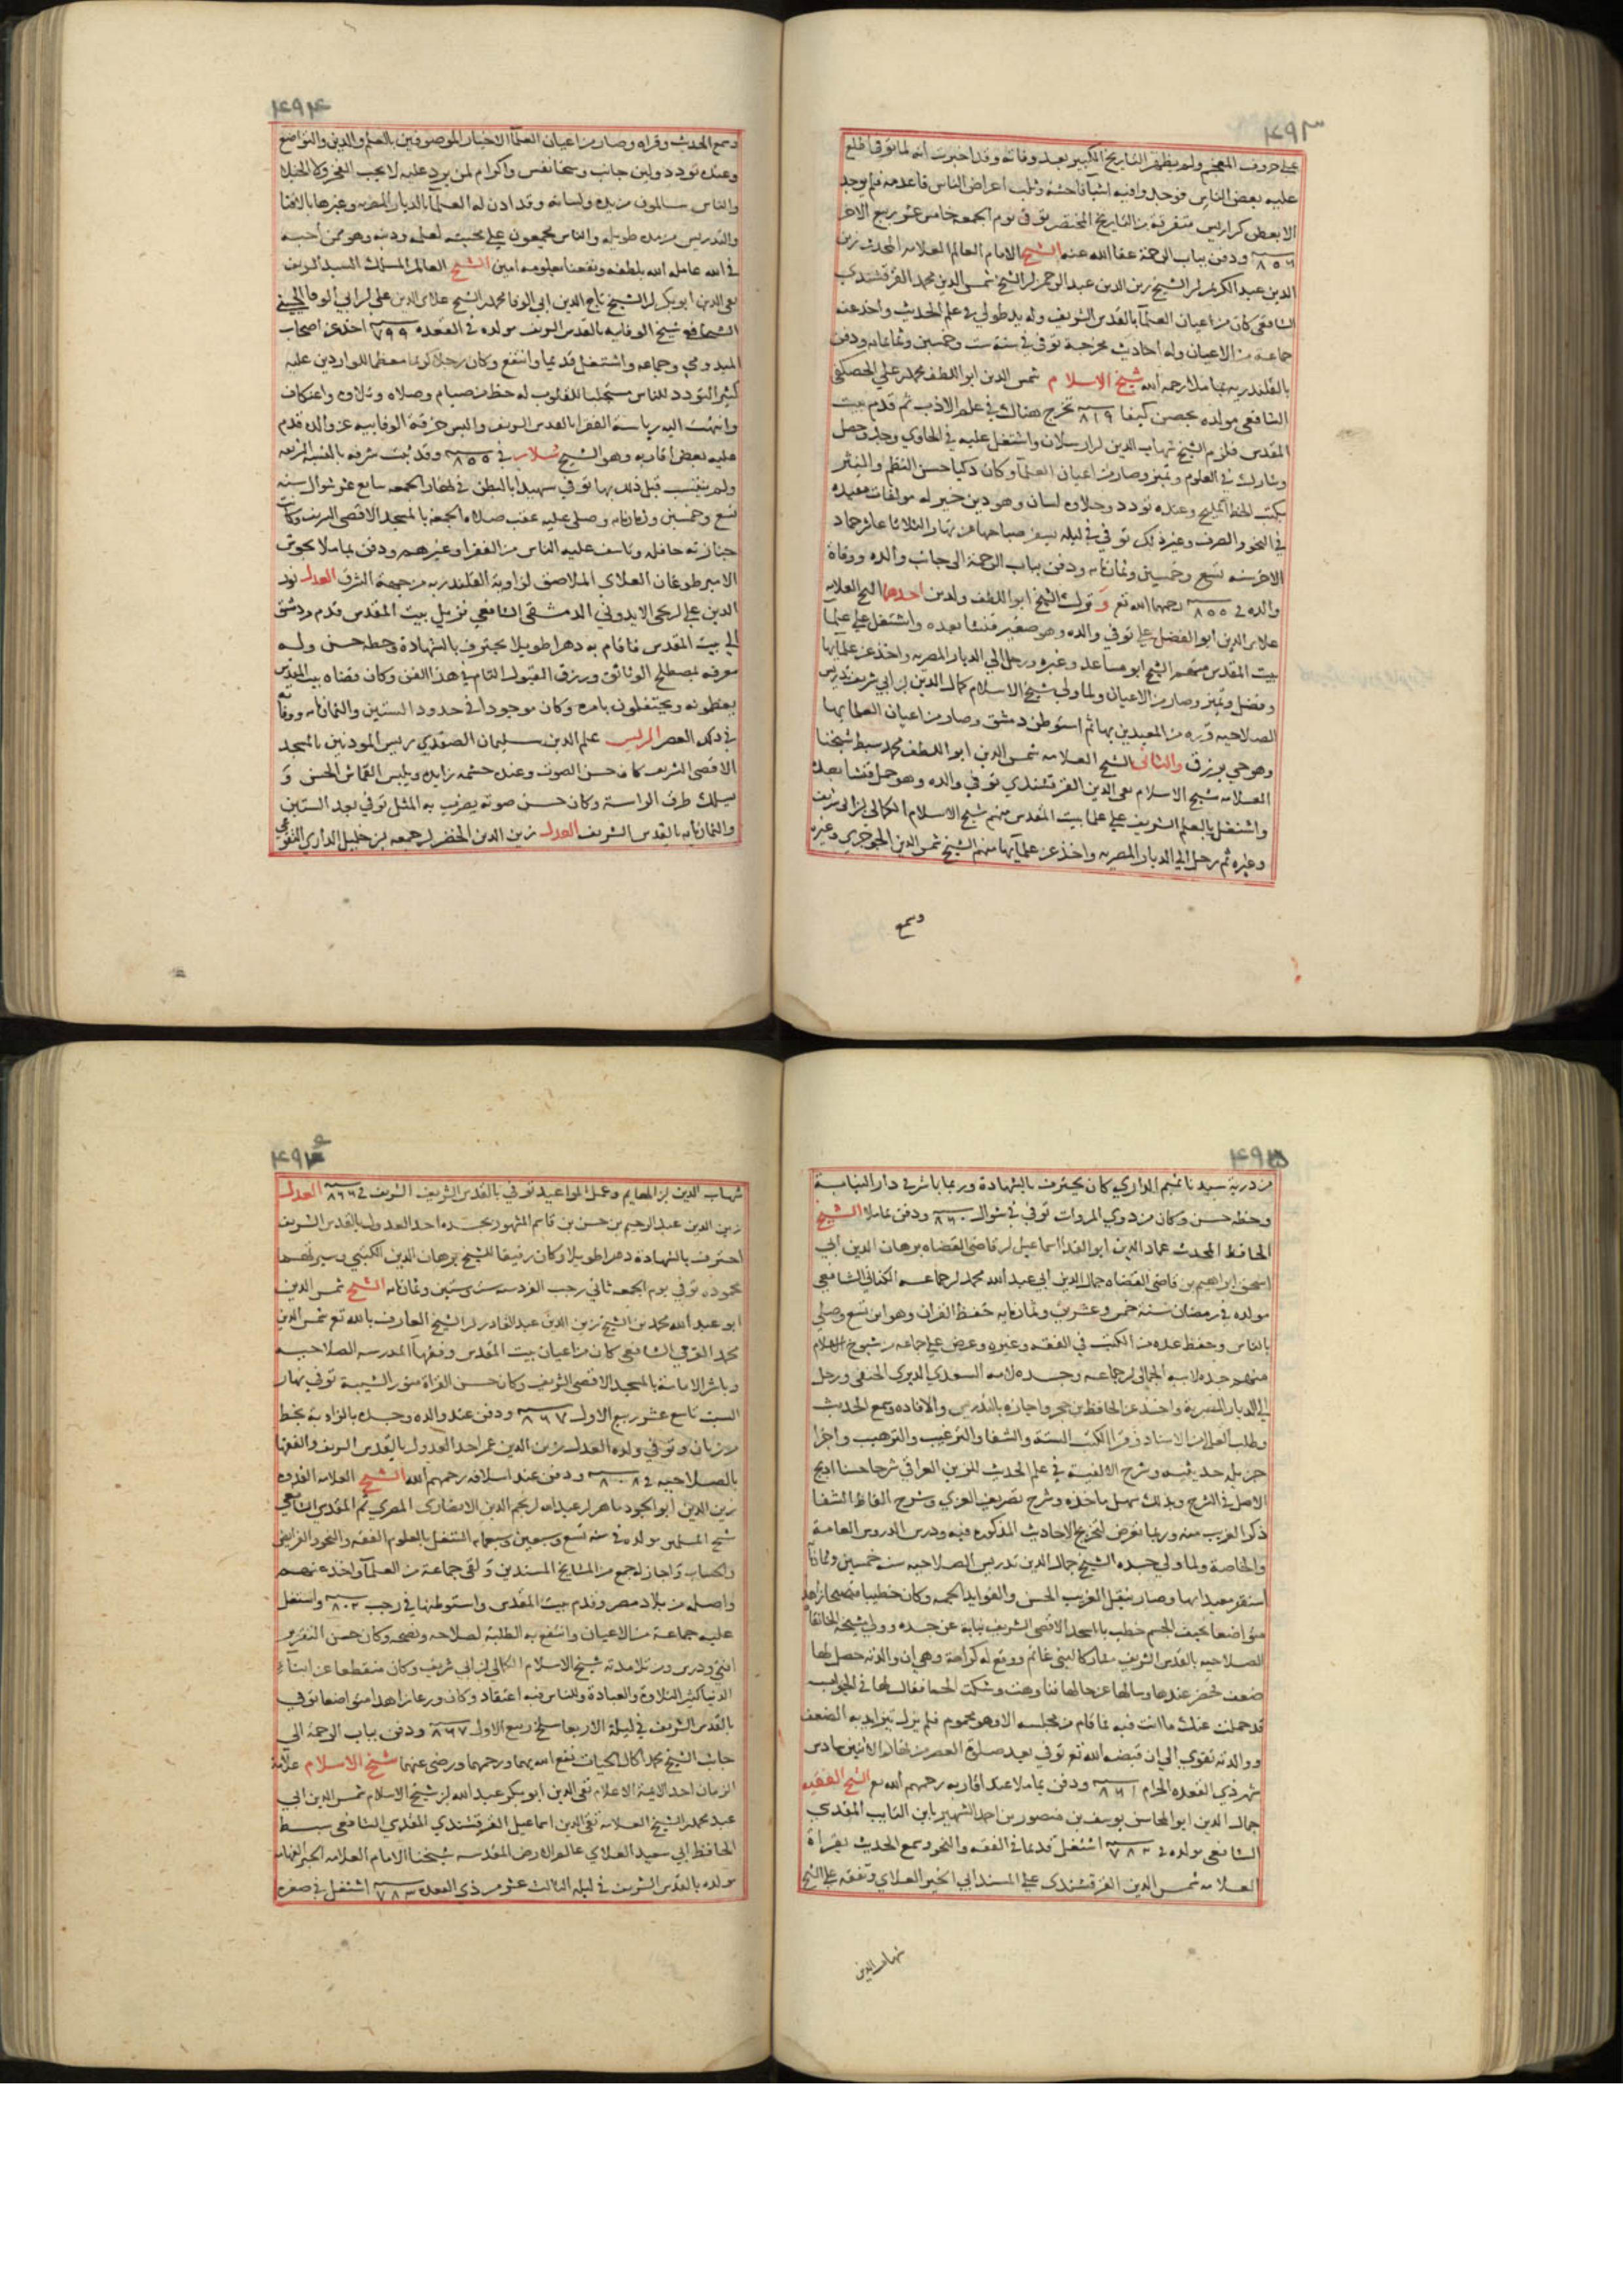 ٤٩٣
على حروف المعجم ولم يظهر التاريخ الكبير بعد وفاته وقد اخبرت انه لما توفي اطلع
عليه بعض الناس فوجد وافيه اشيآ فاحشة وثلب اعراض الناس فاعدمه فلم يوجد
الا بعض كراريس متفرقة من التاريخ المختصر توفي في يوم الجمعه خامس عشر ربيع الاخر
٨٥٦ ودفن بباب الرحمة عفا الله عنه الشيخ الامام العالم العلامه المحدث زين
الدين عبد الكريم لر الشيخ زين الدين عبد الرحمن لر الشيخ شمس الدين محمد القرقشندي
الشافعي كان من اعيان العلمآ بالقدس الشريف وله يد طولي في علم الحديث واخذ عنه
جماعة من الاعيان وله احاديث مخرجة توفي في سنة ست وخمسين وثمانمايه ودفن
بالقلندريه بماملا رحمه الله شيخ الاسلام شمس الدين ابو اللطف محمد لر علي الحصكفي
الشافعي مولده بحصن كيفا ٨١٩ تخرج هناك في علم الادب ثم قدم بيت
المقدس فلزم الشيخ شهاب الدين لر ارسلان واشتغل عليه في الحاوي وجد وحصل
وشارك في العلوم وتميز وصار من اعيان العلمآ وكان ذكيا حسن النظم والنثر
يكتب الخط المليح وعنده تودد وحلاوه لسان وهو دين خير له مولفات مفيده
في النحو والصرف وغير ذلك توفي في ليله يسفر صباحها عن نهار الثلاثا عاشر جماد
الاخر سنه تسع وخمسين وثمانمايه ودفن بباب الرحمة الى جانب والده ووفاة
والده في ٨٥٥ رحمهما الله تع وتوك الشيخ ابو اللطف ولدين احدهما الشيخ العلامه
علاى الدين ابو الفضل علي توفي والده وهو صغير فنشا بعده واشتغل علي علما
بيت المقدس منهم الشيخ ابو مساعد وغيره ورحل الي الديار المصريه واخذ عن علمآيها
وفضل وتميز وصار من الاعيان ولما ولي شيخ الاسلام كمال الدين لر ابي شريف تدريس
الصلاحيه قرره من المعيدين بها ثم استوطن دمشق وصار من اعيان العلما بها
وهو حي يرزق والثانى الشيخ العلامه شمس الدين ابو اللطف محمد سبط شيخنا
العلامه شيخ الاسلام تقى الدين القرقشندي توفي والده وهو حمل فنشا بعده
واشتغل بالعلم الشريف علي علما بيت المقدس منهم شيخ الاسلام الكمالي لر ابي شريف
وغيره ثم رحل الي الديار المصريه واخذ عن علمآيها منهم الشيخ شمس الدين الجوجري وغيره
وسمع
٤٩٤
وسمع الحديث وقراه وصار من اعيان العلمآ الاخيار الموصوفين بالعلم والدين والتواضع
وعنده تودد ولين جانب وسخا نفس واكرام لمن يرد عليه لا يحب الفخر ولا الخيلا
والناس سالمون من يده ولسانه وقد اذن له العلمآ بالديار المصريه وغيرها بالافتا
والتدريس من مده طويله والناس مجمعون علي محبته لعلمه ودينه وهو ممن احبه
في الله عامله الله بلطفه ونفعنا بعلومه امين الشيخ العالم المسلك السيد الشريف
تقى الدين ابو بكر لر الشيخ تاج الدين ابي الوفا محمد لر الشيخ علاى الدين علي لر ابي الوفا الحسيني
الشافعي شيخ الوفايه بالقدس الشريف مولده في القعده ٧٩٩ اخذ عن اصحاب
الميدومي وجماعه واشتغل قديما وانتفع وكان رجلا كريما معظما للواردين عليه
كثير التودد للناس مستجلبا للقلوب له حظ من صيام وصلاه وتلاوه واعتكاف
وانتهت اليه رياسة الفقرا بالقدس الشريف والبس خرقة الوفاييه عن والده قدم
عليه بعض اقاربه وهو الشيخ سلار في ٨٥٥ وقد ثبت شرفه بالنسبة الشريفه
ولم ينتسب قبل ذلك بها توفي شهيدا بالبطن في نهار الجمعه سابع عشر شوال سنه
تسع وخمسين وثمانمايه وصلي عليه عقب صلاه الجمعة بالمسجد الاقصى الشريف وكانت
جنازته حافله وتاسف عليه الناس من الفقرا وغيرهم ودفن بماملا بحوش
الامير طوغان العلاى الملاصق لزاوية القلندريه من جهة الشرق العدل نور
الدين علي لر يحي الايدوني الدمشقي الشافعي نزيل بيت المقدس قدم من دمشق
الي بيت المقدس فاقام به دهرا طويلا يحترف بالشهادة وخطه حسن وله
معرفه بمصطلح الوثائق ورزق القبول التام في هذا الفن وكان قضاه بيت المقدس
يعظمونه ويحتفلون بامره وكان موجودا في حدود الستين والثمانمايه ووفاته
في ذلك العصر الرئيس علم الدين سليمان الصفدي ريس الموذنين بالمسجد
الاقصى الشريف كان حسن الصوت وعنده حشمه زايده ويلبس القماش الحسن و
يسلك طرق الرياسة وكان حسن صوته يضرب به المثل توفي بعد الستين
والثمانمايه بالقدس الشريف العدل زين الدين الخضر لر جمعه لر خليل الداري
٤٩٥
من ذرية سيدنا تميم الداري كان يحترف بالشهادة وربما باشر في دار النيابة
وخطه حسن وكان من ذوي المروات توفي في شوال ٨٦٠ ودفن بماملا الشيخ
الحافظ المحدث عماد الدين ابو الفدا اسماعيل لر قاضى القضاه برهان الدين ابي
اسحق ابراهيم بن قاضي القضاه جمال الدين ابي عبد الله محمد لر جماعه الكناني الشافعي
مولده في رمضان سنة خمس وعشرين وثمانمايه حفظ القران وهو ابن تسع وصلي
بالناس وحفظ عده من الكتب في الفقه وغيره وعرض علي جماعه من شيوخ الاسلام
منهم جده لابيه الجمالي لر جماعه وجده لامه السعدي الديري الحنفي ورحل
الي الديار المصريه واخذ عن الحافظ بن حجر واجازه بالتدريس والافاده وسمع الحديث
وطلب العلا من الاسناد وقرا الكتب الستة والشفا والترغيب والترهيب واجزا
جزيله حديثيه وشرح الالفية في علم الحديث للزين العراقي شرحا حسنا ادمج
الاصل في الشرح وبذلك سهل ماخذه وشرح تصريف العزي وشرح الفاظ الشفا
ذكر الغريب منه وربما تعرض لتخريج الاحاديث المذكوره فيه ودرس الدروس العامة
والخاصة ولما ولي جده الشيخ جمال الدين تدريس الصلاحيه سنه خمسين وثمانمآ
استقر معيدا بها وصار ينقل الغريب الحسن والفوايد الجمه وكان خطيبا فصيحا زاهدا
متواضعا نحيف الجسم خطب بالمسجد الاقصى الشريف نيابه عن جده وولي مشيخة الخانقاه
الصلاحيه بالقدس الشريف مشاركا لبني غانم ووقع له كرامة وهي ان والدته حصل لها
ضعف فحضر عندها وسالها عن حالها فتاوهت وشكت الحما فقال لها في الجواب
قد حملت عنك ما انت فيه فما قام من مجلسه الا وهو محموم فلم يزل يتزايد به الضعف
ووالدته تقوي الي ان قبضه الله تع توفي بعد صلاة العصر من نهار الاثنين سادس
شهر ذي القعده الحرام ٨٦١ ودفن بماملا عند اقاربه رحمهم الله تع الشيخ الفقيه
جمال الدين ابو المحاسن يوسف بن منصور بن احمد الشهير بابن التايب المقدسي
الشافعي مولده في ٧٨٢ اشتغل قديما في الفقه والنحو وسمع الحديث بقراة
العلامه شمس الدين القرقشندي علي المسند ابي الخير العلاي وتفقه علي الشيخ
شهاب الدين
٤٩٦
شهاب الدين لر الهايم وعمل المواعيد توفي بالقدس الشريف الشريف في ٨٦٦ العدل
زين الدين عبد الرحيم بن حسن بن قاسم المشهور بجده احد العدول بالقدس الشريف
احترف بالشهادة دهرا طويلا وكان رفيقا للشيخ برهان الدين الكتبي وسيرتهما
محموده توفي يوم الجمعه ثاني رجب الفرد سنه ست وستين وثمانمايه الشيخ شمس الدين
ابو عبد الله محمد بن الشيخ زين الدين عبد القادر لر الشيخ العارف بالله تع شمس الدين
محمد القرمي الشافعي كان من اعيان بيت المقدس وفقهآ المدرسه الصلاحيه
وباشر الامامة بالمسجد الاقصى الشريف وكان حسن القراة منور الشيبة توفي نهار
السبت تاسع عشر ربيع الاول ٨٦٧ ودفن عند والده وجده بالزاوية بخط
مرزبان وتوفي ولده العدل زين الدين عمر احد العدول بالقدس الشريف والفقها
بالصلاحيه في ودفن عند اسلافه رحمهم الله الشيخ العلامه القدوه
زين الدين ابو الجود ماهر لر عبد الله لر نجم الدين الانصارى المصري ثم المقدسي الشافعي
شيخ المسلمين مولده في سنه تسع وسبعين وسبعمايه اشتغل بالعلوم الفقه والنحو والفرايض
والحساب واجاز له جمع من المشايخ المسندين ولقي جماعة من العلمآ واخذ عنهم
واصله من بلاد مصر وقدم بيت المقدس واستوطنها في رجب ٨٠٣ واشتغل
عليه جماعة من الاعيان وانتفع به الطلبة لصلاحه ونصحه وكان حسن التقرير
افتي ودرس ومن تلامذته شيخ الاسلام الكمالي لر ابي شريف وكان منقطعا عن ابنآء
الدنيا كثير التلاوة والعبادة وللناس فيه اعتقاد وكان ورعا زاهدا متواضعا توفي
بالقدس الشريف في ليلة الاربعا سلخ ربيع الاول ٨٦٧ ودفن بباب الرحمة الي
جانب الشيخ محمد اكال الحيات نفع الله بهما ورحمهما ورضي عنهما شيخ الاسلام علامة
الزمان احد الايمة الاعلام تقى الدين ابو بكر عبد الله لر شيخ الاسلام شمس الدين ابي
عبد محمد لر الشيخ العلامه تقى الدين اسماعيل القرقشندي المقدسي الشافعي سبط
الحافظ ابي سعيد العلاي عالم الارض المقدسه شيخنا الامام العلامه الحبر الفهامه
مولده بالقدس الشريف في ليله الثالث عشر من ذي القعده ٧٨٣ اشتغل في صغره